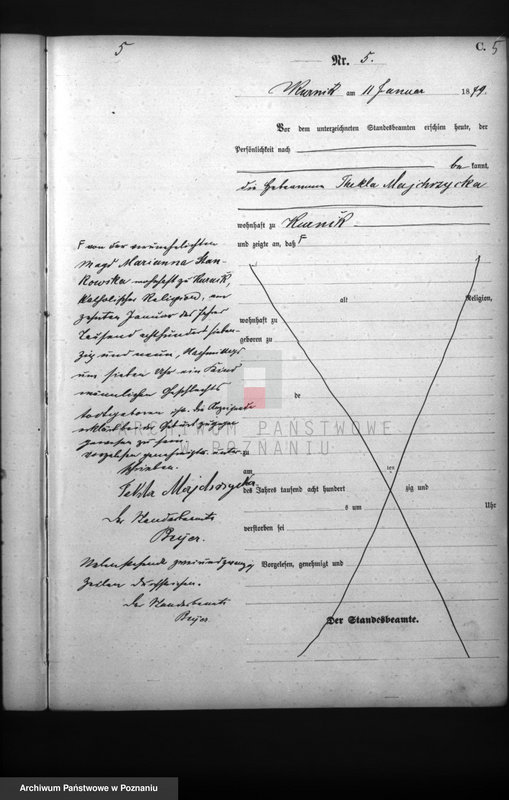 5
C. 5
Nr. 5.
Kurnik am 11 Januar 1879.
Vor dem unterzeichneten Standesbeamten erschien heute, der
Persönlichkeit nach
be kannt,
die Hebamme Thekla Majchrzycka
wohnhaft zu Kurnik
und zeigte an, daß
von der unverehelichten
Magd Marianna Stan-
kowska wohnhaft zu Kurnik,
katholischer Religion, am
zehnten Januar des Jahres
tausend achthundert sieben-
zig und neun, Nachmittags
um sieben Uhr ein Kind
männlichen Geschlechts
todtgeboren sei, die Anzeigende
erklärte bei der Geburt zugegen
gewesen zu sein.
Vorgelesen genehmigt unter-
schrieben.
Tekla Majchrzycka
Der Standesbeamte
Beyer.
Nebenstehende zweiundzwanzig
Zeilen durchstrichen.
Der Standesbeamte
Beyer.
alt Religion,
wohnhaft zu
geboren zu
de
zu
am ten
des Jahres tausend acht hundert zig und
s um Uhr
verstorben sei
Vorgelesen, genehmigt und
Der Standesbeamte.
ARCHIWUM PAŃSTWOWE
W POZNANIU
Archiwum Państwowe w Poznaniu